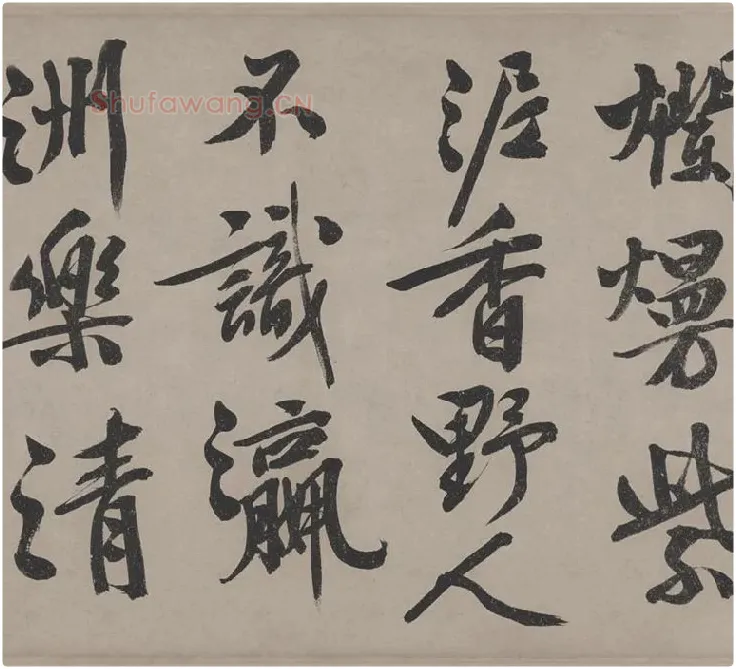 熳紫
泥香野人
不識瀛
洲樂清
Shufawang.CN